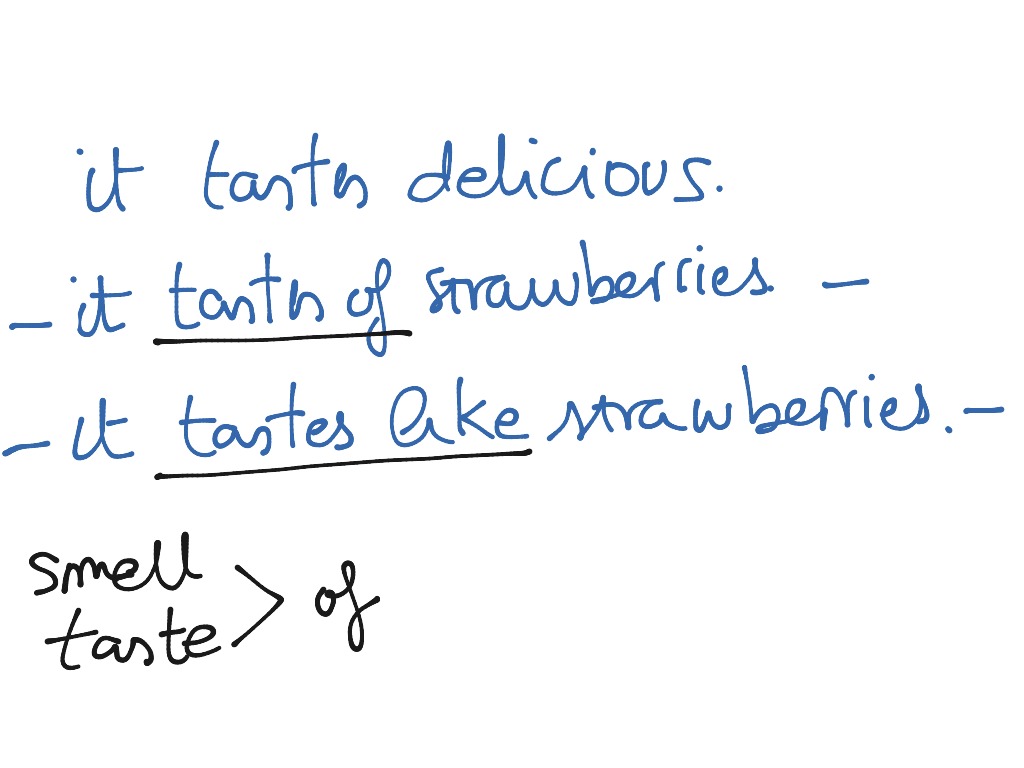 it tastes delicious.
- it tastes of strawberries. -
- it tastes like strawberries. -
smell
taste > of